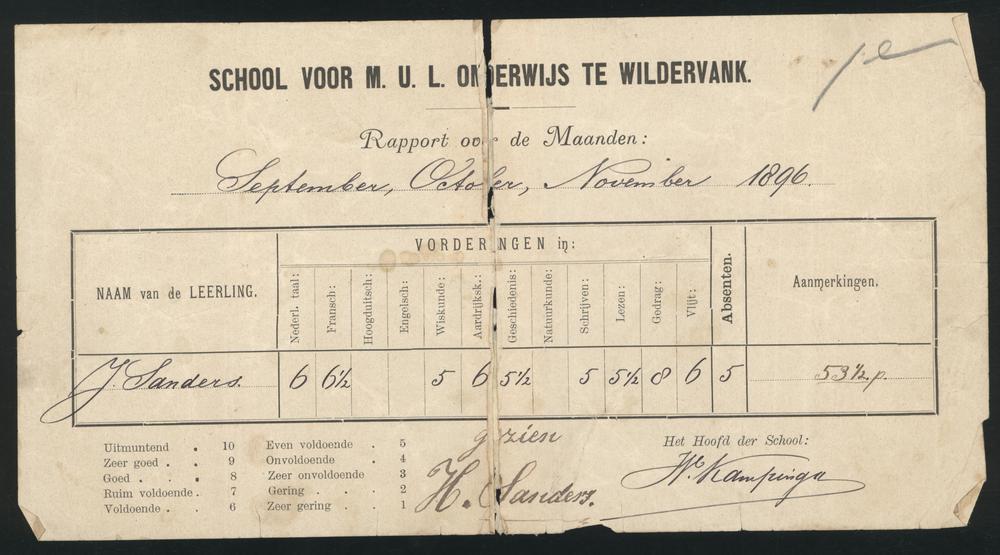 SCHOOL VOOR M. U. L. ONDERWIJS TE WILDERVANK.
Rapport over de Maanden:
September, October, November 1896.
NAAM van de LEERLING.
VORDERINGEN in:
Nederl. taal:
Fransch:
Hoogduitsch:
Engelsch:
Wiskunde:
Aardrijksk.:
Geschiedenis:
Natuurkunde:
Schrijven:
Lezen:
Gedrag:
Vlijt:
Absenten.
Aanmerkingen.
J. Sanders. 6 6½ 5 6 5½ 5 5½ 8 6 5 53½ p.
Uitmuntend . 10
Zeer goed . . 9
Goed . . . 8
Ruim voldoende . 7
Voldoende . . 6
Even voldoende . 5
Onvoldoende . 4
Zeer onvoldoende 3
Gering . . . 2
Zeer gering . . 1
gezien
H. Sanders.
Het Hoofd der School:
W. Kampinga